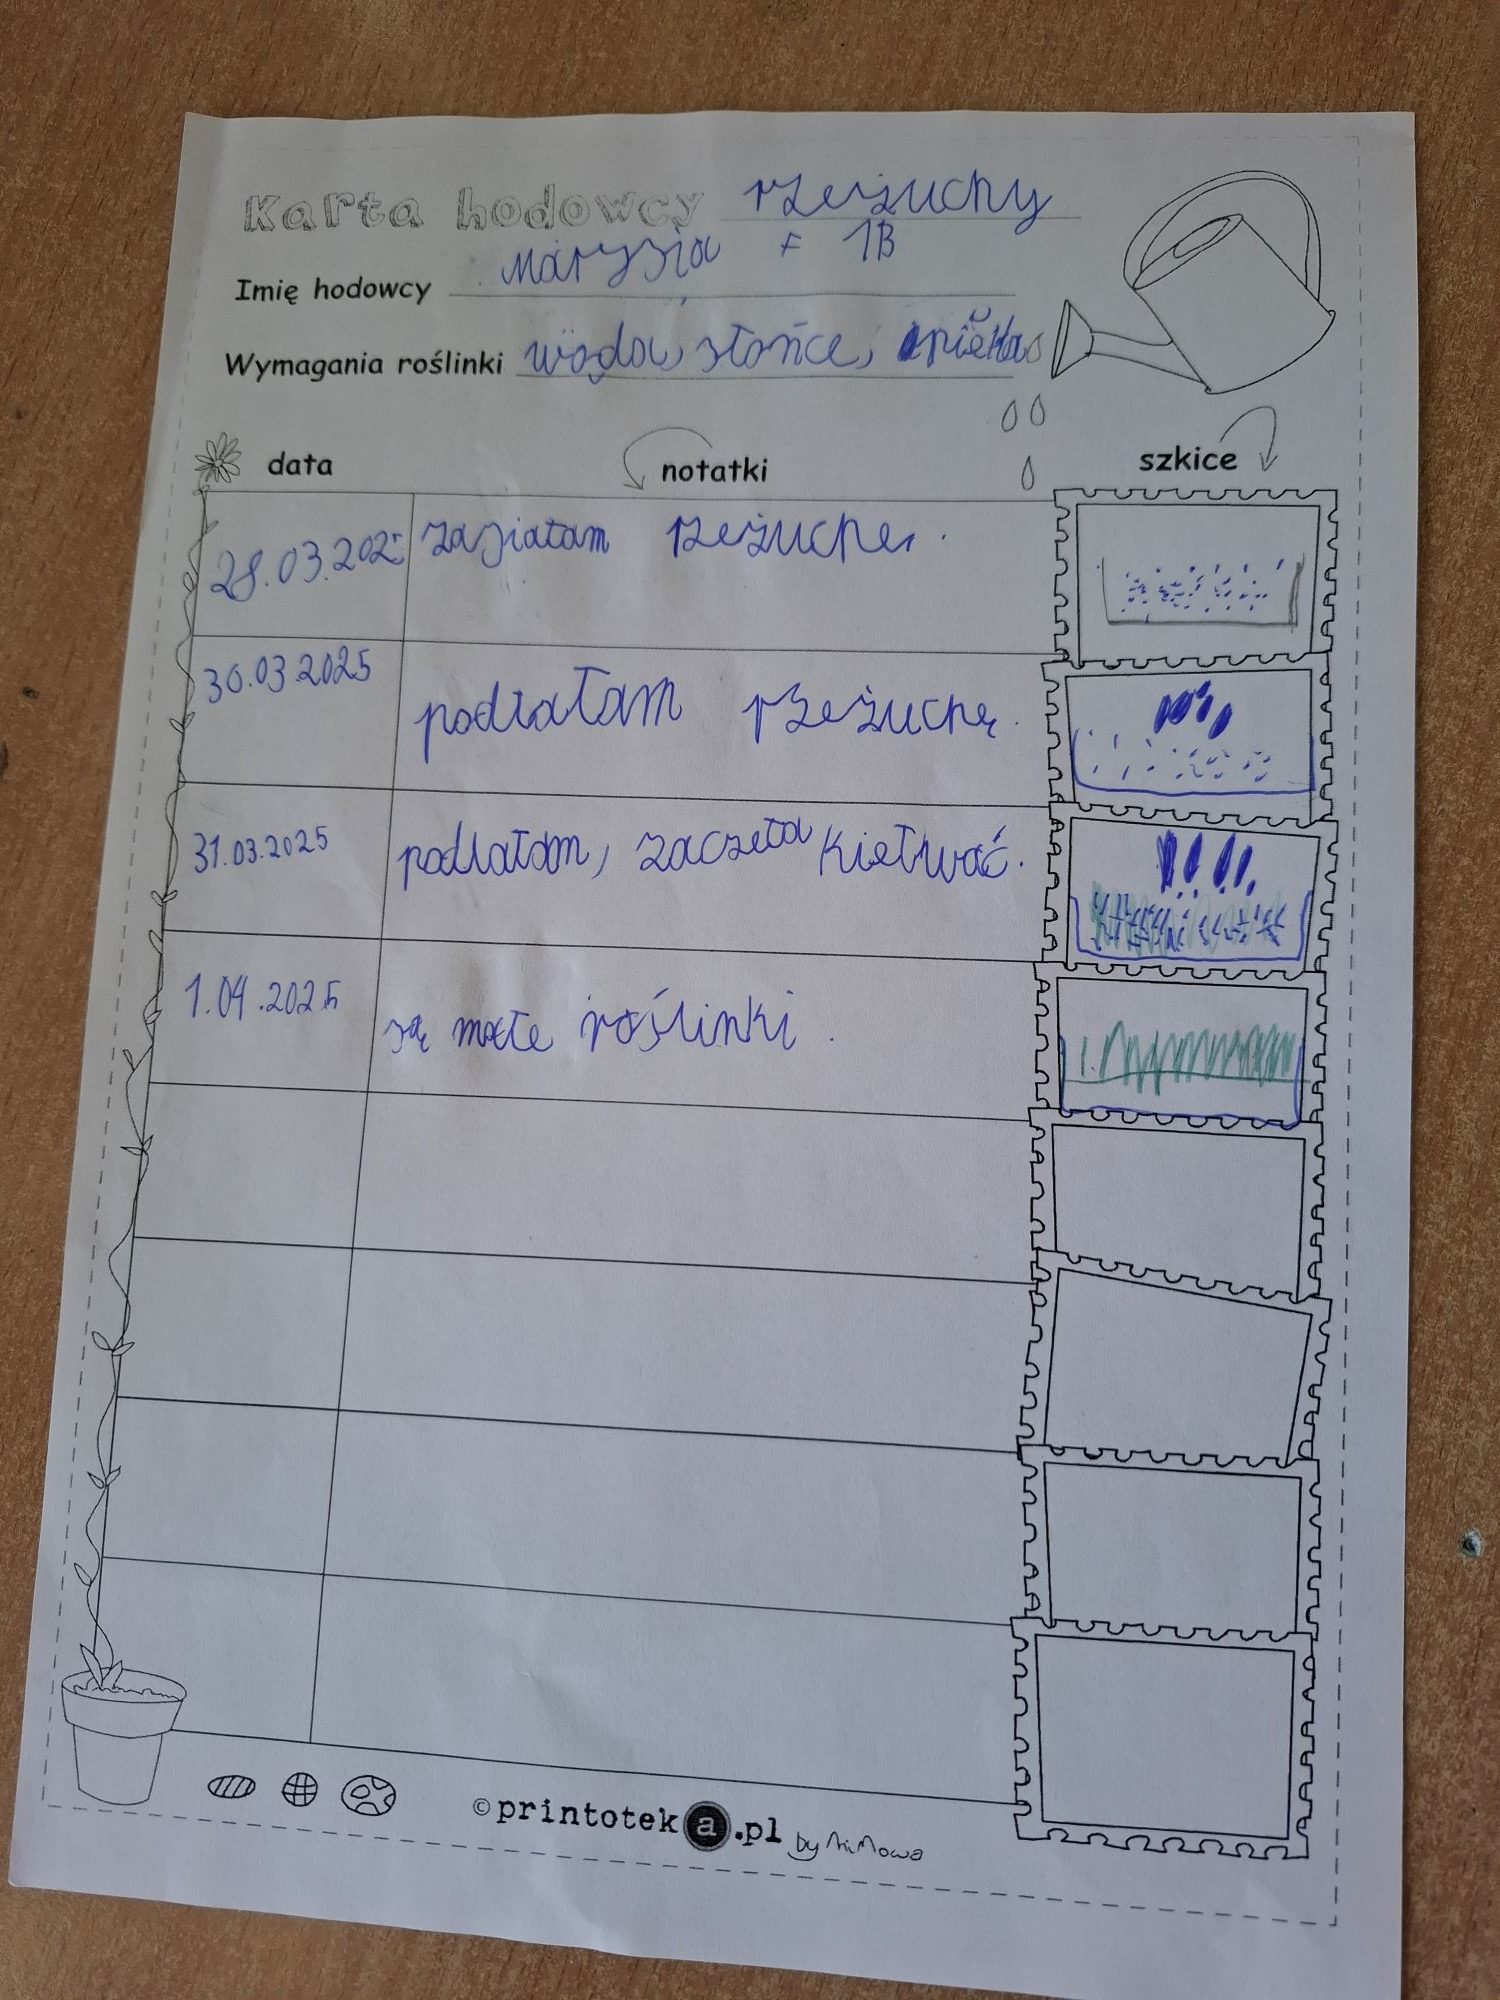 Karta hodowcy rzeżuchy
Marysia F 1B
Imię hodowcy
Wymagania roślinki woda, słońce, opieka
data notatki szkice
28.03.2025 zasiałam rzeżuchę.
30.03.2025 podlałam rzeżuchę.
31.03.2025 podlałam, zaczęła kiełkwać.
1.04.2025 są małe roślinki.
©printoteka.pl by MiMowa